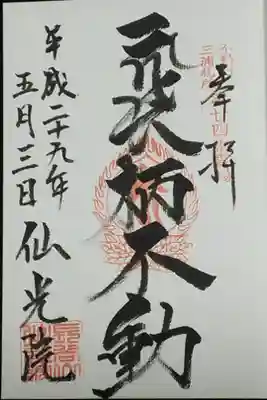 奉拝
三浦
廿四
長柄不動
平成二十九年
五月三日
仙光院